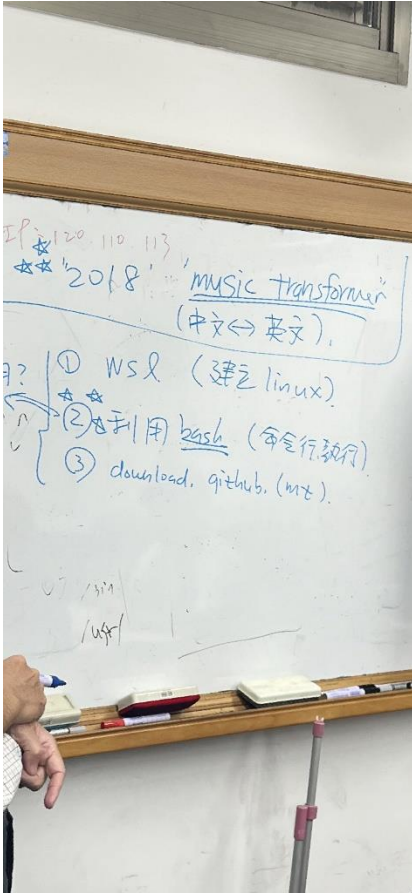 IP: 120 110 113
☆
☆☆ "2018" "music transformer"
(中文↔英文).
用?
① wsl (建立linux)
☆ ☆
② ☆利用bash (命令行執行)
③ download. github. (mt).
/bin
/usr/